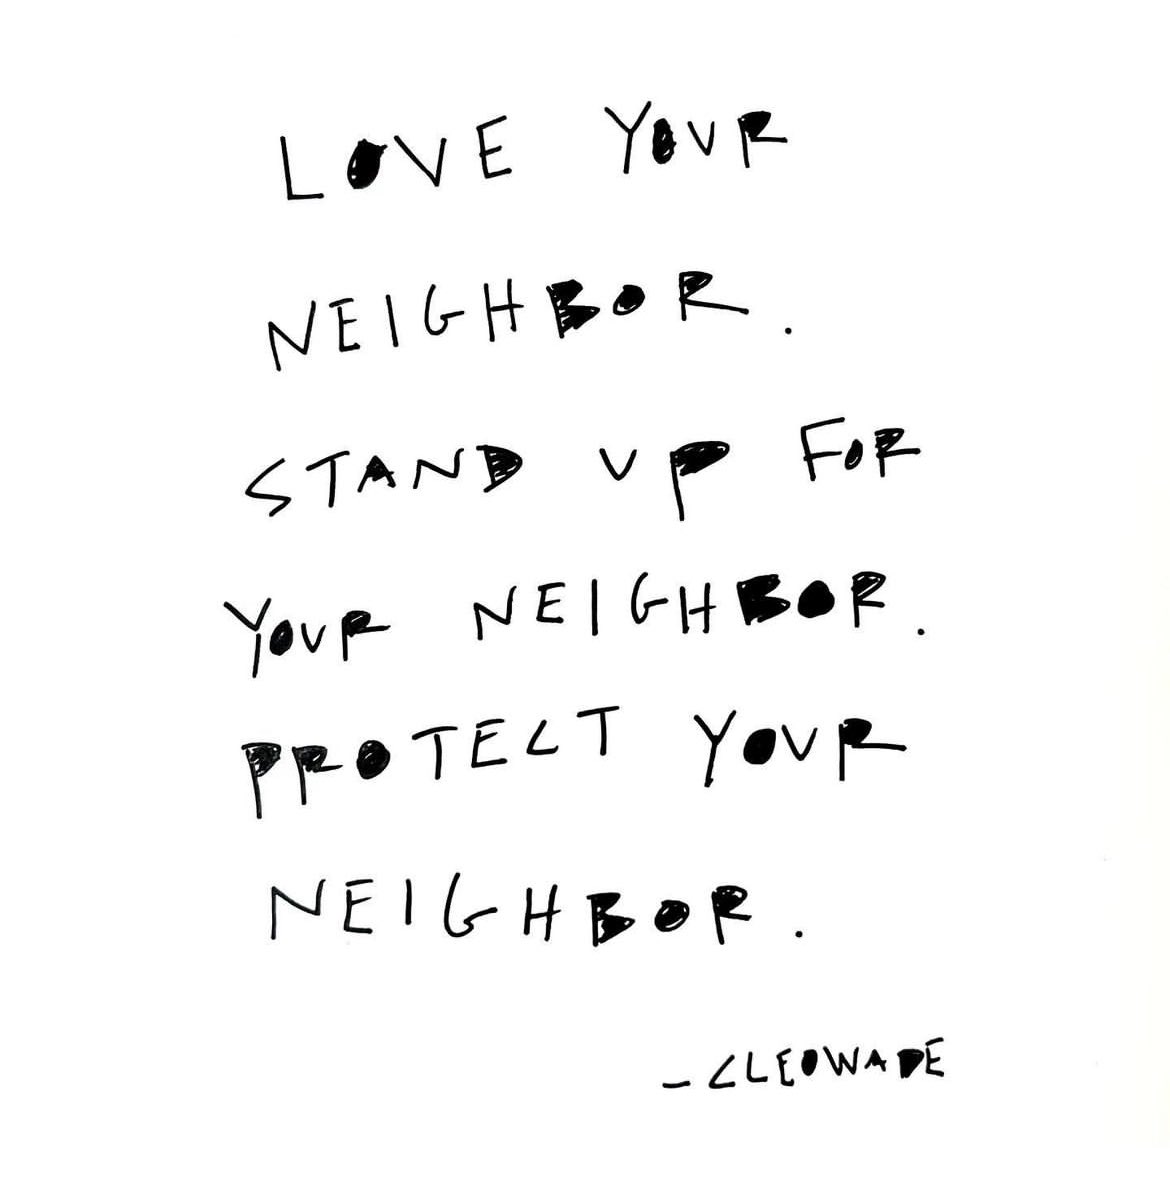 LOVE YOUR
NEIGHBOR.
STAND UP FOR
YOUR NEIGHBOR.
PROTECT YOUR
NEIGHBOR.
– CLEOWADE